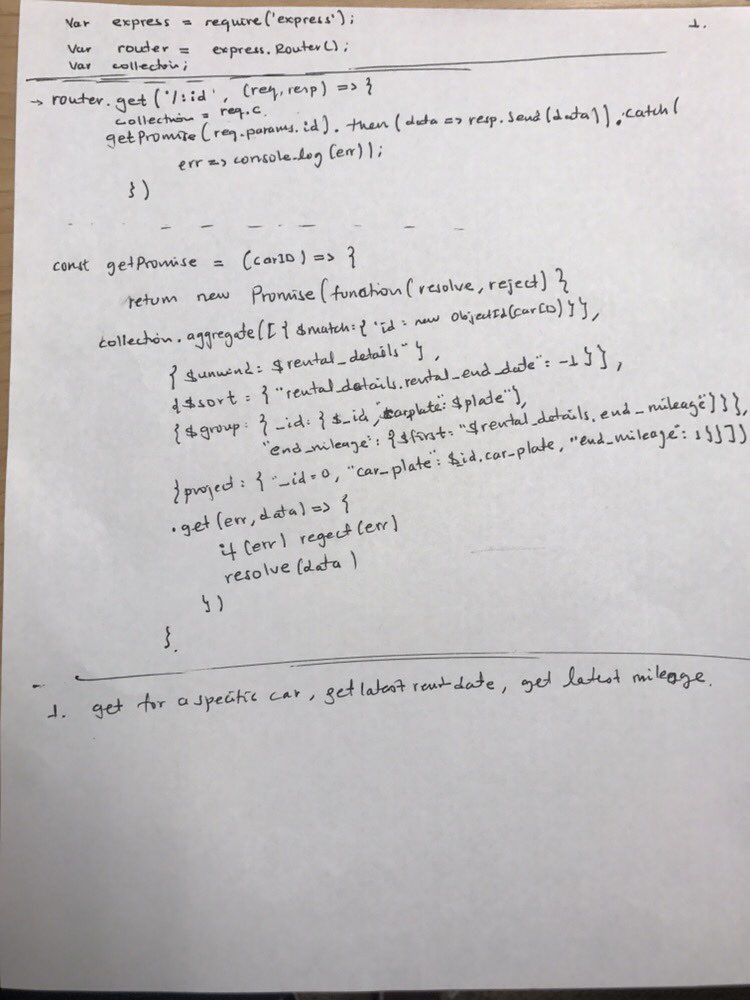 1.
Var express = require('express');
Var router = express.Router();
Var collection;
→ router.get('/:id', (req, resp) => {
collection = req.c.
getPromise(req.params.id).then(data => resp.send(data)).catch(
err => console.log(err));
})
const getPromise = (carID) => {
return new Promise(function(resolve, reject) {
collection.aggregate([{ $match: { 'id: new ObjectId(carID) } },
{ $unwind: $rental_details" },
{ $sort: { "rental_details.rental_end_date": -1 } },
{ $group: { _id: { $_id, "carplate": $plate"},
"end_mileage": {$first: "$rental_details.end_mileage"} } },
{project: { "_id=0, "car_plate": $id.car_plate, "end_mileage": 1 } } ])
.get(err, data) => {
if (err) regect(err)
resolve(data)
})
}.
1. get for a specific car, get latest rent date, get latest mileage.